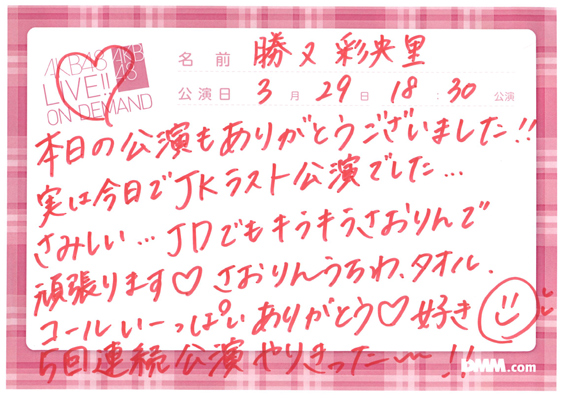 AKB48
LIVE!!
ON DEMAND
AKB
48
名前 勝又 彩央里
公演日 3月29日 18:30 公演
本日の公演もありがとうございました!!
実は今日でJKラスト公演でした...
さみしい...JDでもキラキラさおりんで
頑張ります♡さおりんうちわ、タオル、
コールいーっぱいありがとう♡好き
5回連続公演やりきったー〜!!
DMM.com